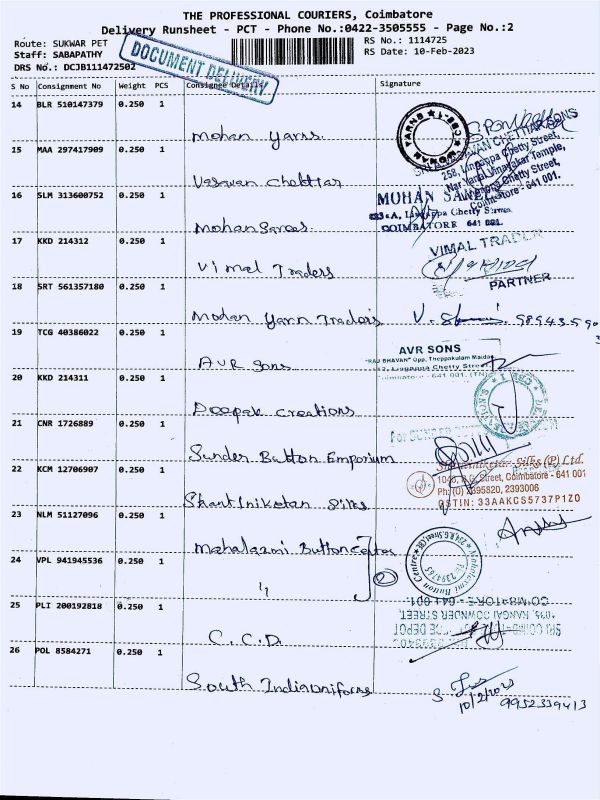 THE PROFESSIONAL COURIERS, Coimbatore
Delivery Runsheet - PCT - Phone No.:0422-3505555 - Page No.:2
Route: SUKWAR PET
RS No.: 1114725
Staff: SABAPATHY
RS Date: 10-Feb-2023
DRS No.: DCJB111472502
DOCUMENT DELIVERY
S No Consignment No Weight PCS Consignee Details Signature
14 BLR 510147379 0.250 1
Mohan Yarns.
MOHAN YARNS
15 MAA 297417909 0.250 1
258, Lingappa Chetty Street,
Coimbatore - 641 001.
16 SLM 313600752 0.250 1
MOHAN
Chetty Street
COIMBATORE 641 001.
Mohan Sarees.
17 KKD 214312 0.250 1
Vimal Traders
VIMAL TRADER
PARTNER
18 SRT 561357180 0.250 1
Mohan Yarn Traders
19 TCG 40386022 0.250 1
AVR Sons
AVR SONS
"RAJ BHAVAN" Opp. Theppakulam Maidan
Lingappa Chetty Street
20 KKD 214311 0.250 1
Deepak Creations
21 CNR 1726889 0.250 1
Sunder Button Emporium
For SUNDER
22 KCM 12706907 0.250 1
Shantiniketan Silks
Silks (P) Ltd.
Street, Coimbatore - 641 001
Ph: (O) 2395820, 2393006
GSTIN: 33AAKCS5737P1Z0
23 NLM 51127096 0.250 1
Mahalaxmi Button Centre
Mahalaxmi Button Centre
24 VPL 941945536 0.250 1
"
25 PLI 200192818 0.250 1
C.C.D
COIMBATORE - 641 001.
SRI COIMBATORE DEPOT
26 POL 8584271 0.250 1
South India Uniforms
10/2/2023
9952339413